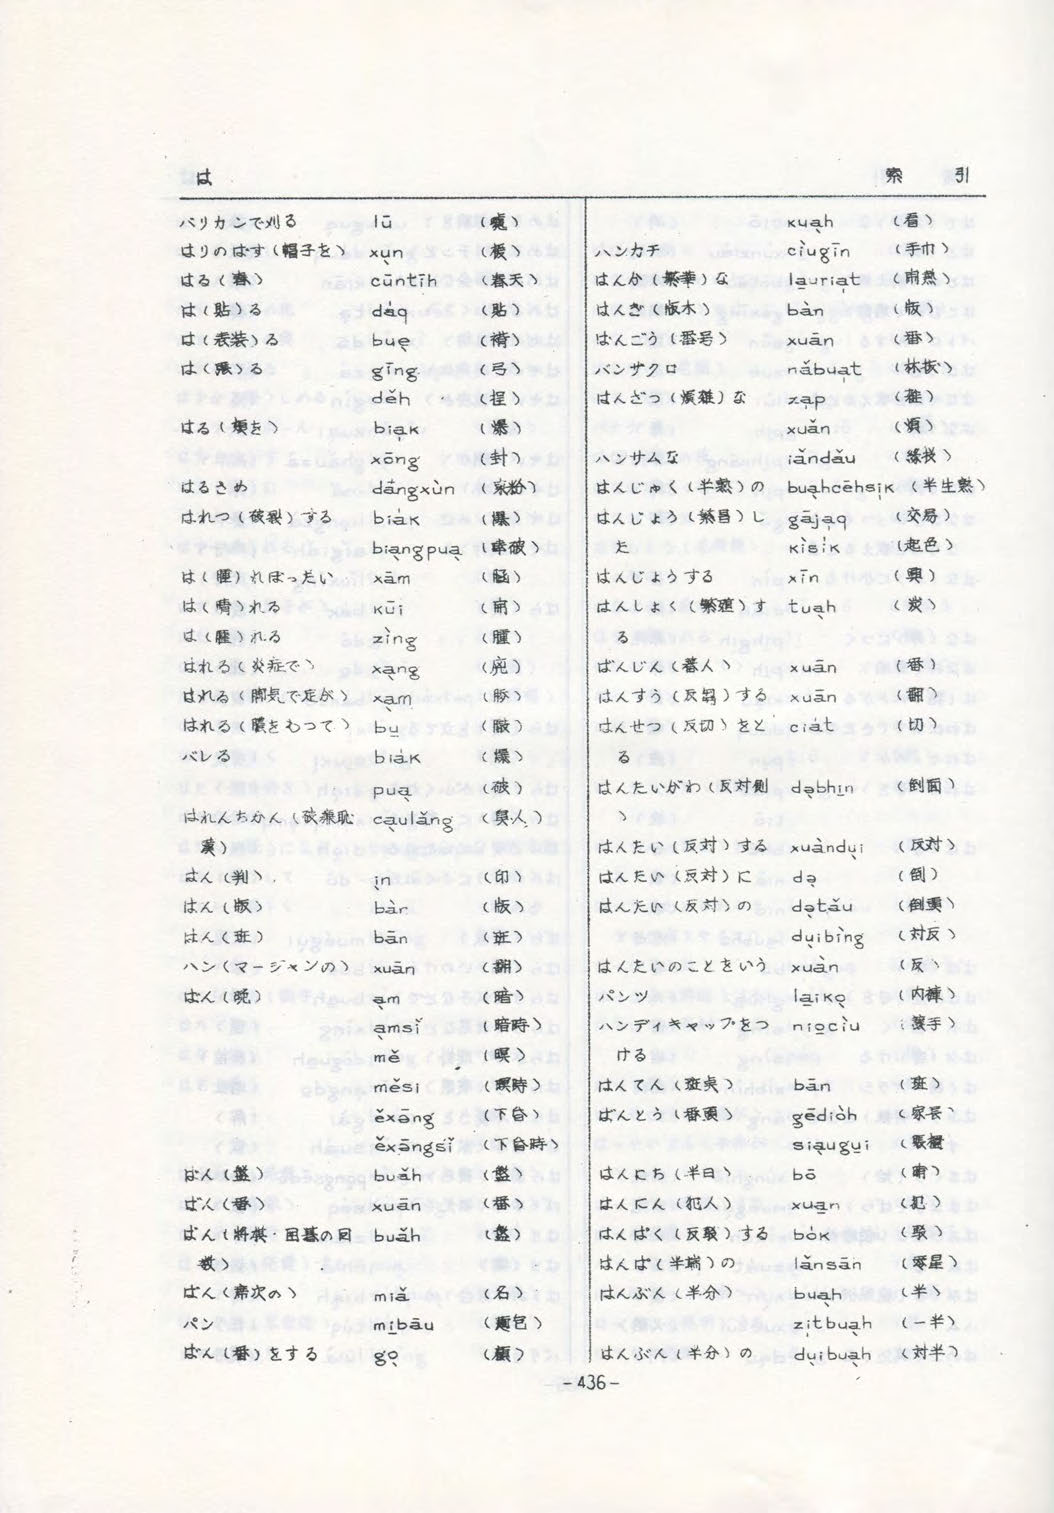 は
索引
バリカンで刈る lū
はりのばす(帽子を) xụn
はる(春) cūntīh (春天)
は(貼)る dáq (貼)
は(表装)る buẹ
は(張)る gīng (弓)
děh (捏)
はる(頬を) biạk
xōng (封)
はるさめ dāngxùn (冬粉)
はれつ(破裂)する biák (爆)
biạngpuạ
は(腫)れぼったい xām
は(晴)れる kūi
は(腫)れる zìng (腫)
はれる(炎症で) xạng
はれる(脚気で足が) xạm
はれる(膿をもって) bu̱
バレる biák (爆)
puạ (破)
はれんちかん(破廉恥 cạulǎng
漢)
はん(判) ịn (印)
はん(版) bàn (版)
はん(班) bān (班)
ハン(マージャンの) xuān (翻)
ばん(晩) ạm (暗)
ạmsǐ (暗時)
mě (暝)
měsi (暝時)
ěxāng
ěxāngsǐ
ばん(盤) buǎh (盤)
ばん(番) xuān (番)
ばん(将棋・囲碁の回 buǎh (盤)
数)
ばん(席次の) miǎ (名)
パン mi̱bāu (麺包)
ばん(番)をする gọ (顧)
kuạh (看)
ハンカチ ciùgīn (手巾)
はんか(繁華)な la̱uriạt
はんぎ(版木) bàn (版)
ばんごう(番号) xuān (番)
バンザクロ nǎbuạt (林抜)
はんざつ(煩雑)な zạp (雑)
xuǎn (煩)
ハンサムな iǎndǎu (緣投)
はんじゅく(半熟)の buạhcēhsịk (半生熟)
はんじょう(繁昌)し gājạq
た kìsík (起色)
はんじょうする xīn (興)
はんしょく(繁殖)す tuạh
る
ばんじん(蕃人) xuān (番)
はんすう(反芻)する xuān (翻)
はんせつ(反切)をと ciát (切)
る
はんたいがわ(反対側 dạbhi̱n (倒面
)
はんたい(反対)する xuàndụi (反対)
はんたい(反対)に dạ (倒)
はんたい(反対)の dạtǎu (倒頭)
dụibìng (対反)
はんたいのことをいう xuàn (反)
パンツ la̱ikọ (内褲)
ハンディキャップをつ nio̱ciu (譲手)
ける
はんてん(斑点) bān (斑)
ばんとう(番頭) gēdiòh (家長)
siạugu̱i (賬櫃
はんにち(半日) bō (晡)
はんにん(犯人) xua̱n (犯)
はんぱく(反駁)する bók (駁)
はんぱ(半端)の lǎnsān (零星)
はんぶん(半分) buạh (半)
zịtbuạh (一半)
はんぶん(半分)の dụibuạh (対半)
-436-